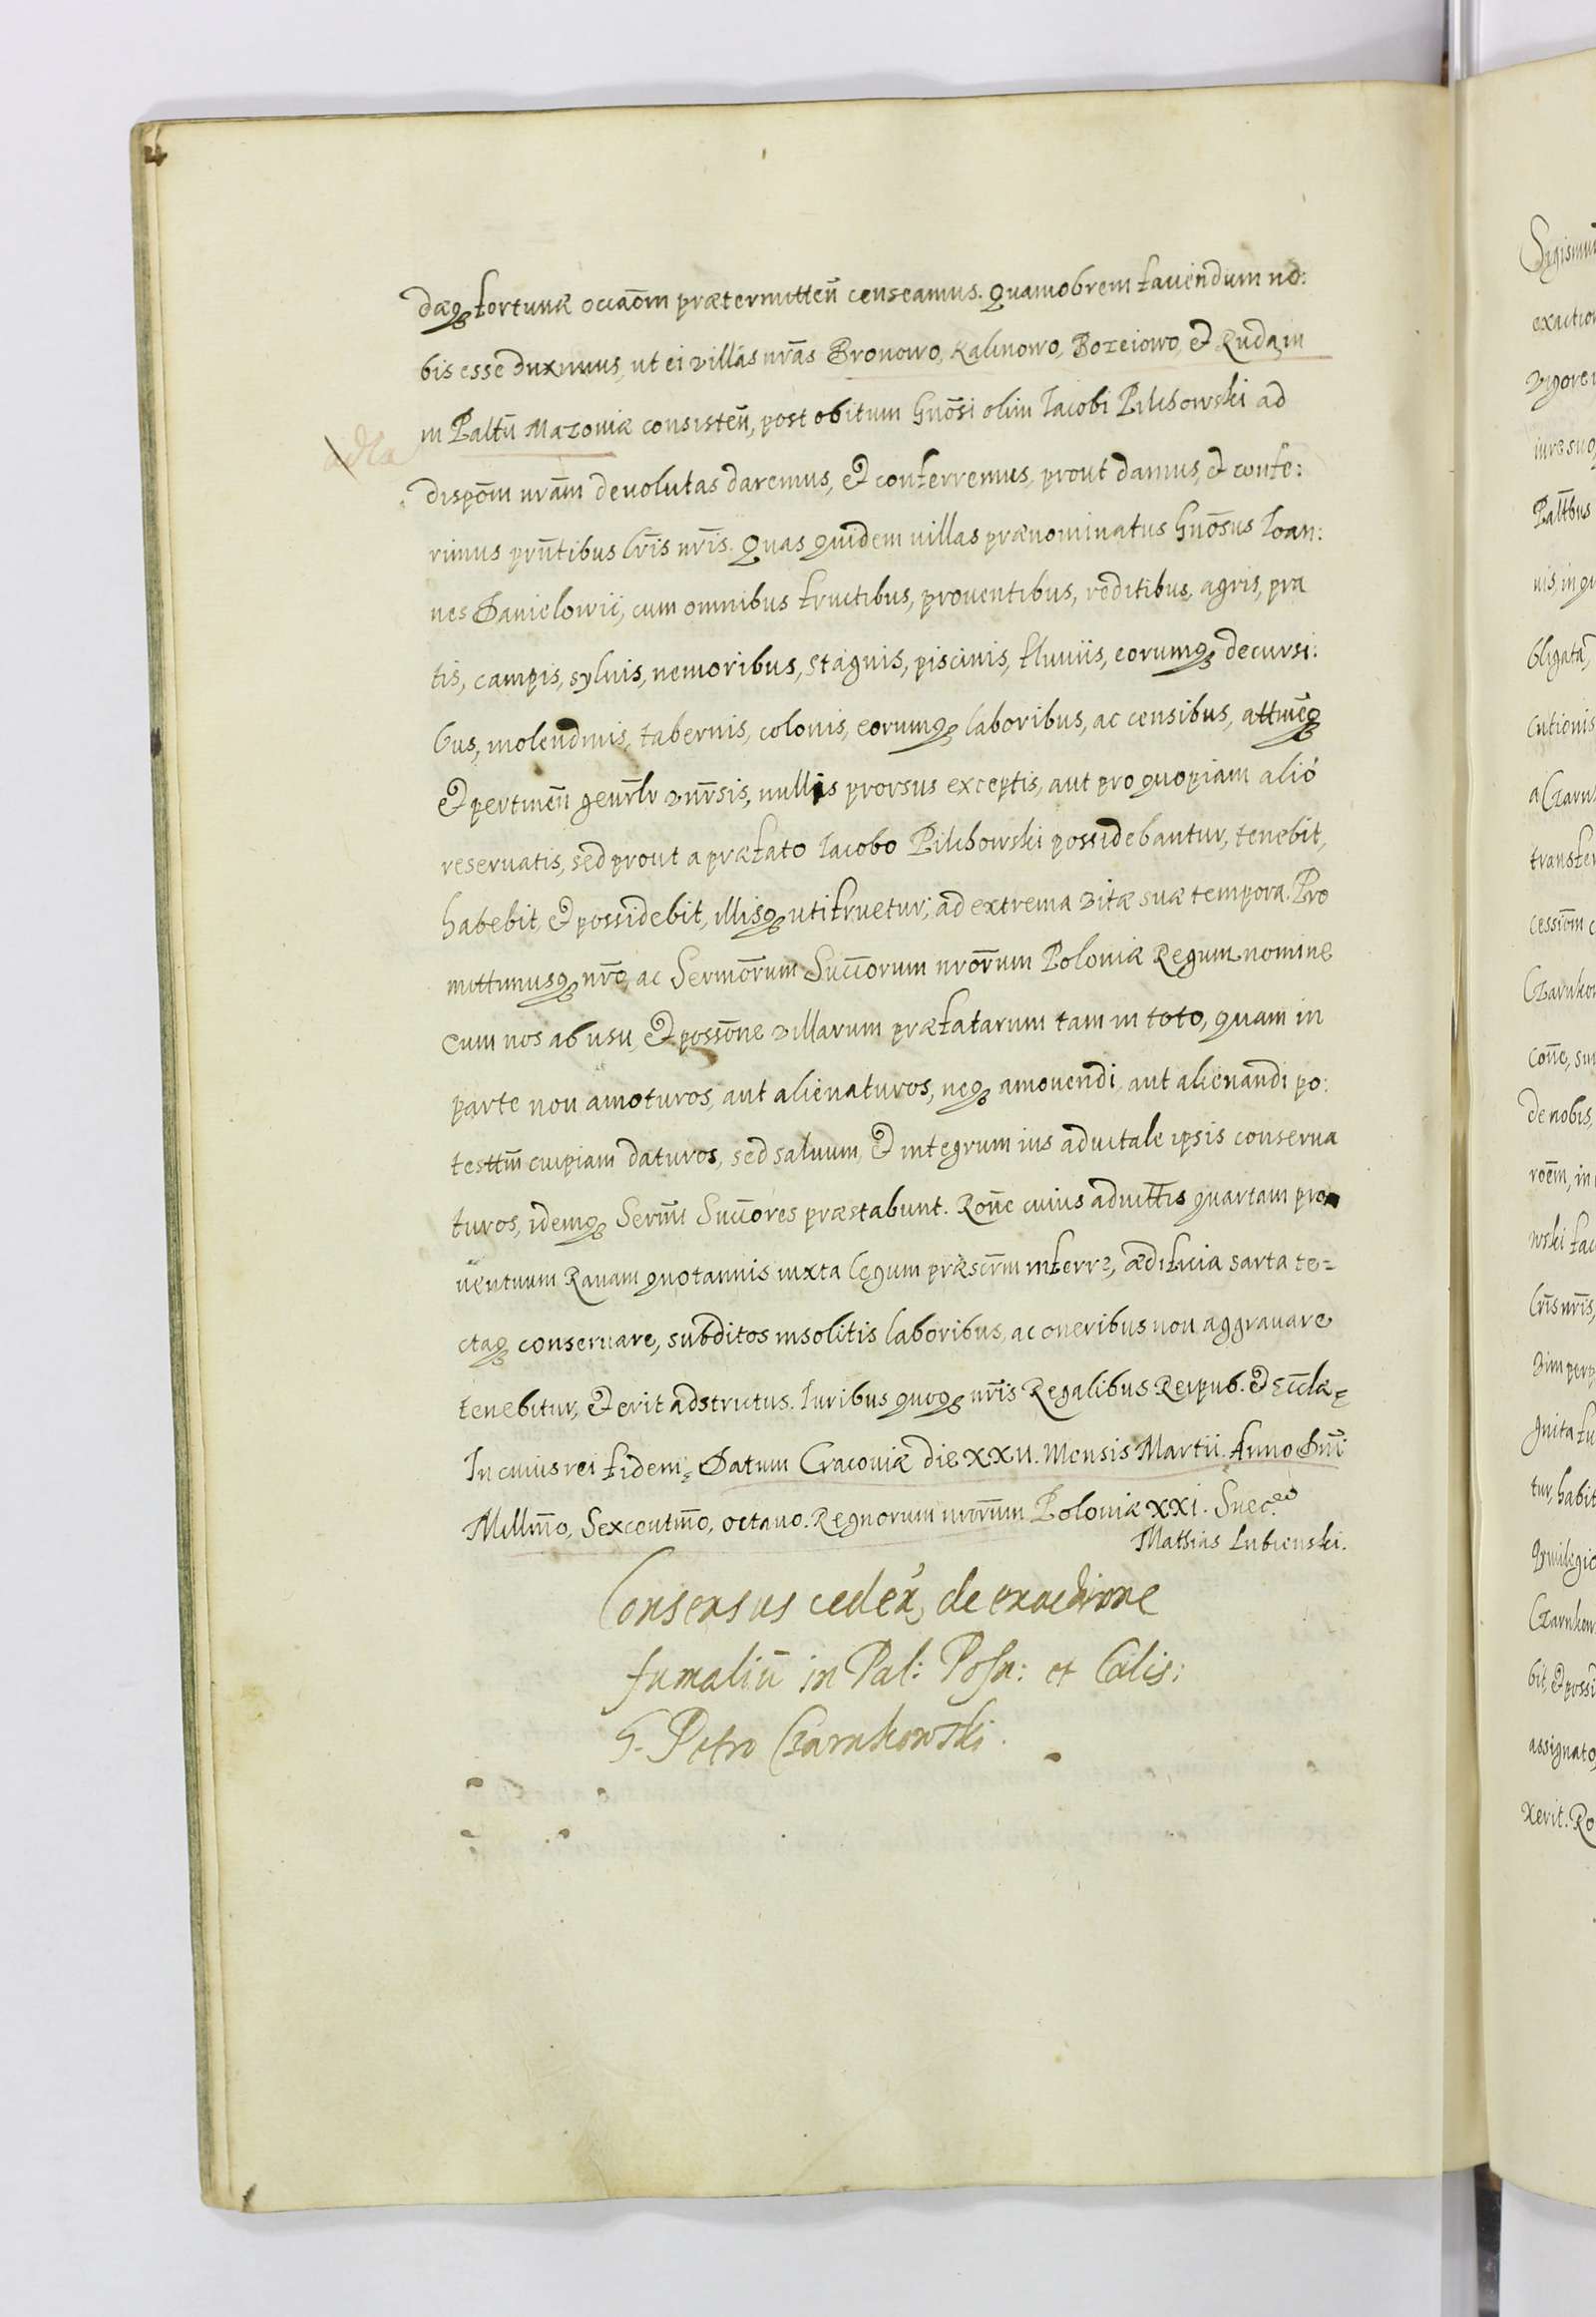 dæq₃ fortunæ occaōm prætermitteñ censeamus. Quamobrem favendum no:
bis esse duximus, ut ei villas nrãs Bronowo, Kalinowo, Bozeiowo, et Rudam
in Paltũ Mazoviæ consisteñ, post obitum Gnōsi olim Iacobi Pilchowski ad
dispōm nrãm devolutas daremus, et conferremus, prout damus, et confe:
rimus prñtibus lris nris. Quas quidem villas prænominatus Gnōsus Ioan:
nes Danielowic, cum omnibus fructibus, proventibus, reditibus, agris, pra
tis, campis, sylvis, nemoribus, stagnis, piscinis, fluviis, eorumq₃ decursi:
bus, molendinis, tabernis, colonis, eorumq₃ laboribus, ac censibus, attineq₃
et pertineñ genrlr vnrsis, nullis prorsus exceptis, aut pro quopiam alio
reservatis, sed prout a præfato Iacobo Pilchowski possidebantur, tenebit,
habebit, et possidebit, illisq₃ utifruetur, ad extrema vitæ suæ tempora. Pro
mittimusq₃ nrõ, ac Sermōrum Succorum nrōrum Poloniæ Regum nomine
eum nos ab usu, et possōne villarum præfatarum tam in toto, quam in
parte non amoturos, aut alienaturos, neq₃ amovendi aut alienandi po:
testtm̃ cuipiam daturos, sed salvum, et integrum ius advitale ipsis conserva
turos, idemq₃ Sermi Succores præstabunt. Rone cuius advittis quartam pro
ventuum Ravam quotannis iuxta legum præscrm inferre, ædificia sarta te=
ctaq₃ conservare, subditos insolitis laboribus, ac oneribus non aggravare
tenebitur, et erit adstrictus. Iuribus quoq₃ nris Regalibus Reipub. et Eccłæ
In cuius rei fidem. Datum Cracoviæ die XXII. Mensis Martii. Anno Dni
Millmo, Sexcentmo, octavo. Regnorum nrorum Poloniæ XXI. Suec.
Mathias Lubienski.
Consensus cedeñ de exactione
fumaliũ in Pal: Posn: et Calis:
G. Petro Czarnkowski.